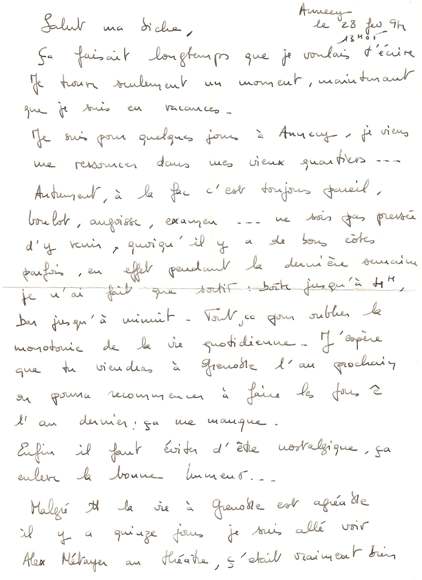 Annecy
le 28 fev 94
13H01
Salut ma biche,
Ça faisait longtemps que je voulais t'écrire
Je trouve seulement un moment, maintenant
que je suis en vacances.
Je suis pour quelques jours à Annecy, je viens
me ressourcer dans mes vieux quartiers ---
Autrement, à la fac c'est toujours pareil,
boulot, angoisse, examen --- ne sois pas pressée
d'y venir, quoiqu'il y a de bons côtés
parfois, en effet pendant la dernière semaine
je n'ai fait que sortir : boîte jusqu'à 4H,
Bar jusqu'à minuit - Tout ça pour oublier la
monotonie de la vie quotidienne - J'espère
que tu viendras à Grenoble l'an prochain
on pourra recommencer à faire les fous
l'an dernier : ça me manque.
Enfin il faut éviter d'être nostalgique, ça
enlève la bonne humeur ---
Malgré tt la vie à Grenoble est agréable
il y a quinze jours je suis allé voir
Alex Métayer au théâtre, ç'était vraiment bien